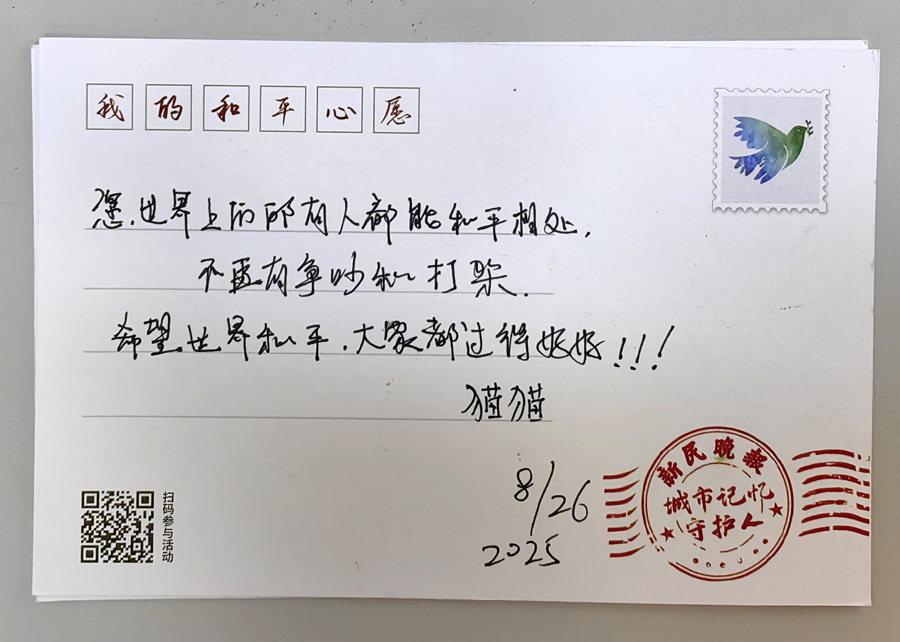 我的和平心愿
愿世界上的所有人都能和平相处,
不要有争吵和打架.
希望世界和平,大家都过得好好!!!
猫猫
8/26
2025
扫码参与活动
新民晚报
城市记忆
守护人